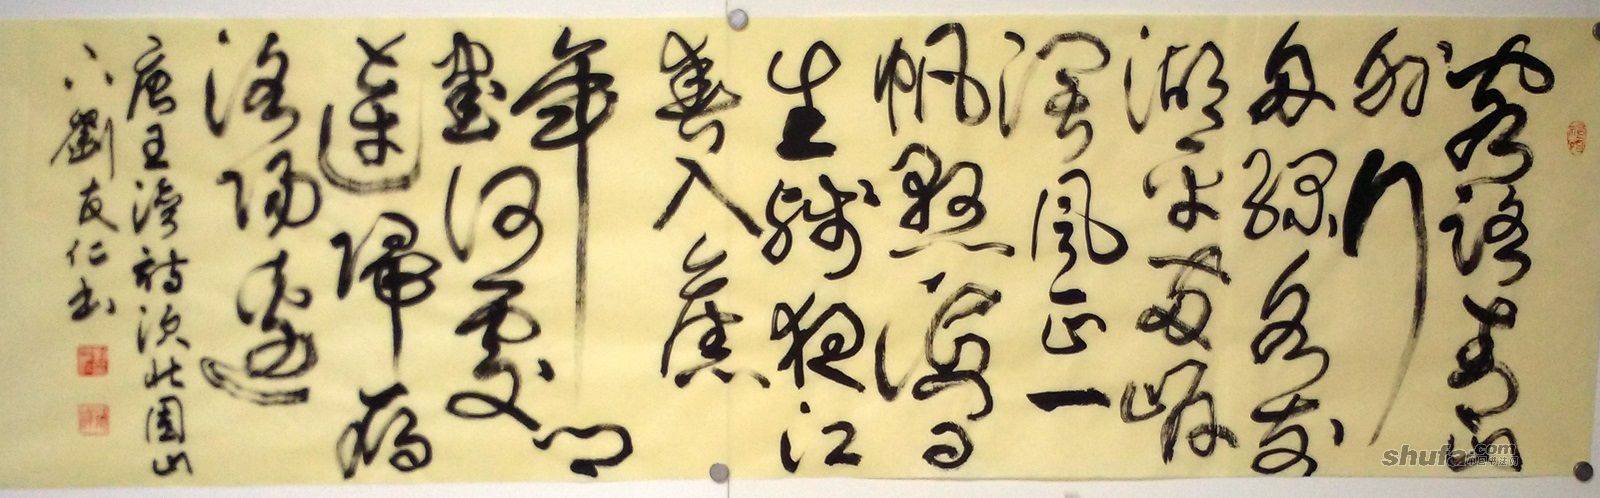 客路青山
外行
舟綠水前
潮平兩岸
闊風正一
帆懸海日
生殘夜江
春入舊
年鄉
書何處
達歸雁
洛陽邊
唐王灣詩次北固山
下劉友仁書
shufa.com